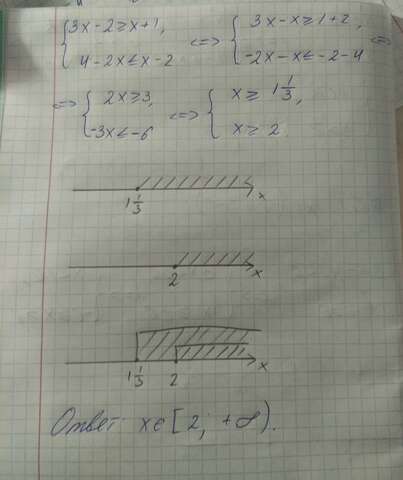 {3x-2≥x+1, 4-2x≤x-2 <=> {3x-x≥1+2, -2x-x≤-2-4 <=>
<=> {2x≥3, -3x≤-6 <=> {x≥1 1/3, x≥2.
1 1/3 x
2 x
1 1/3 2 x
Ответ: x∈[2; +∞).